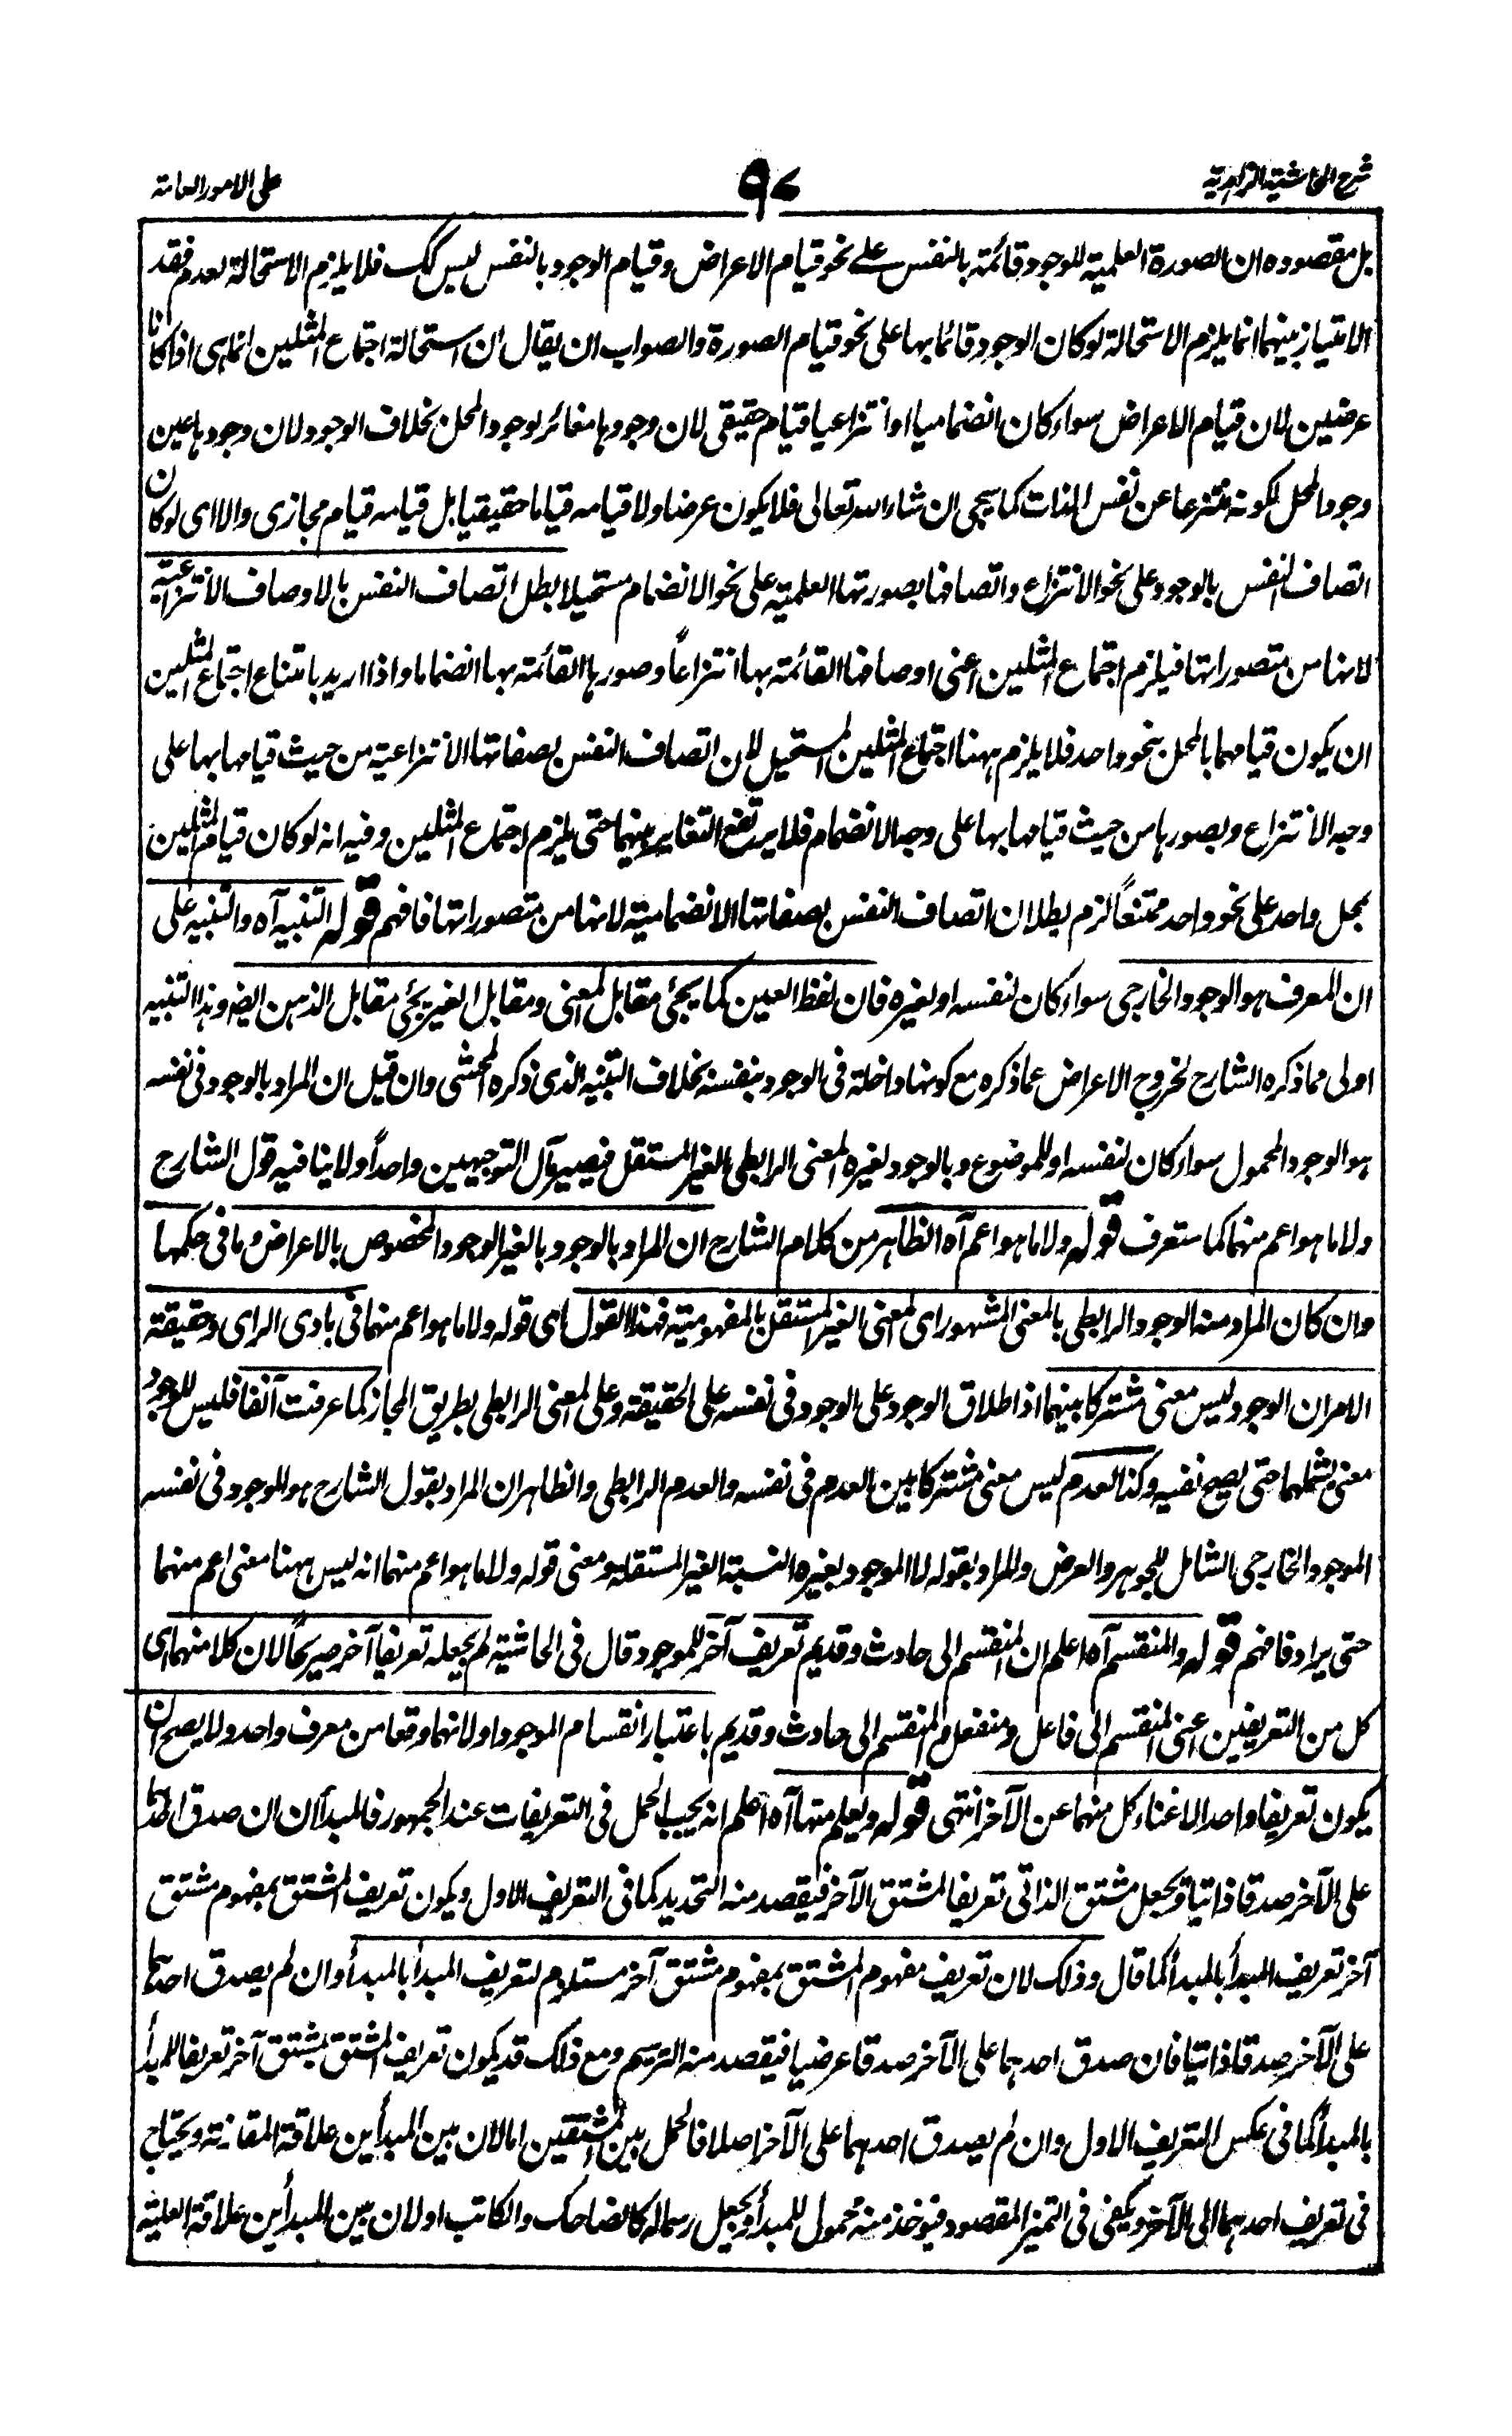 شرح الحاشية الزاهدية
٩٧
على الامور العامة
بل مقصوده ان الصورة العلمية للوجود قائمة بالنفس على نحو قيام الاعراض وقيام الوجود بالنفس ليس كك فلا يلزم الاستحالة لعدم فقد
الامتياز بينهما انما يلزم الاستحالة لو كان الوجود قائما بها على نحو قيام الصورة والصواب ان يقال ان استحالة اجتماع المثلين انما هى اذا كانا
عرضين لان قيام الاعراض سواء كان انضماميا او انتزاعيا قيام حقيقى لان وجودها مغائر لوجود المحل بخلاف الوجود لان وجودها عين
وجود المحل لكونه منتزعا عن نفس الذات كما سيجى ان شاء الله تعالى فلا يكون عرضا ولا قيامه قياما حقيقيا بل قيامه قيام مجازى والا اى لو كان
اتصاف النفس بالوجود على نحو الانتزاع واتصافها بصورتها العلمية على نحو الانضمام مستحيلا بطل اتصاف النفس بالاوصاف الانتزاعية
لانها من متصوراتها فيلزم اجتماع المثلين اعنى اوصافها القائمة بها انتزاعاً وصورها القائمة بها انضماما واذا اريد بامتناع اجتماع المثلين
ان يكون قيامهما بالمحل بنحو واحد فلا يلزم ههنا اجتماع المثلين المستحيل لان اتصاف النفس بصفاتها الانتزاعية من حيث قيامها بها على
وجه الانتزاع وبصورها من حيث قيامها بها على وجه الانضمام فلا يرتفع التغاير بينهما حتى يلزم اجتماع المثلين وفيه انه لو كان قيام المثلين
بمحل واحد على نحو واحد ممتنعاً لزم بطلان اتصاف النفس بصفاتها الانضمامية لانها من متصوراتها فافهم قوله التنبيه آه والتنبيه على
ان المعرف هو الوجود الخارجى سواء كان لنفسه او لغيره فان لفظ العين كما يجئ مقابل المعنى ومقابل الغير يجئ مقابل الذهن ايضا وهذا التنبيه
اولى مما ذكره الشارح لخروج الاعراض عما ذكره مع كونها داخلة فى الوجود بنفسه بخلاف التنبيه الذى ذكره المحشى وان قيل ان المراد بالوجود فى نفسه
هو الوجود المحمول سواء كان لنفسه او للموضوع وبالوجود لغيره المعنى الرابطى الغير المستقل فيصير مآل التوجيهين واحداً ولا ينافيه قول الشارح
ولا ما هو اعم منهما كما ستعرف قوله ولا ما هو اعم آه الظاهر من كلام الشارح ان المراد بالوجود بالغير الوجود المخصوص بالاعراض وما فى حكمها
وان كان المراد منه الوجود الرابطى بالمعنى المشهور اى المعنى الغير المستقل بالمفهومية فهذا القول اى قوله ولا ما هو اعم منهما فى بادى الراى وحقيقة
الامر ان الوجود ليس معنى مشتركا بينهما اذ اطلاق الوجود على الوجود فى نفسه على الحقيقة وعلى المعنى الرابطى بطريق المجاز كما عرفت آنفا فليس للوجود
معنى يشملهما حتى يصح نفيه وكذا العدم ليس معنى مشتركا بين العدم فى نفسه والعدم الرابطى والظاهر ان المراد بقول الشارح هو الموجود فى نفسه
الموجود الخارجى الشامل للجوهر والعرض والمراد بقوله لا الموجود بغيره النسبة الغير المستقلة ومعنى قوله ولا ما هو اعم منهما انه ليس ههنا معنى اعم منهما
حتى يراد فافهم قوله والمنقسم آه اعلم ان المنقسم الى حادث وقديم تعريف آخر للموجود قال فى الحاشية لم يجعله تعريفا آخر صريحاً لان كلا منهما اى
كل من التعريفين اعنى المنقسم الى فاعل ومنفعل والمنقسم الى حادث وقديم باعتبار انقسام الموجود او لانهما وقعا من معرف واحد ولا يصح ان
يكون تعريفا واحدا لاغناء كل منهما عن الآخر انتهى قوله ويعلم منها آه اعلم انه يجب الحمل فى التعريفات عند الجمهور فالمبدأان ان صدق احدهما
على الآخر صدقا ذاتيا ويجعل مشتق الذاتى تعريفا لمشتق الآخر فيقصد منه التحديد كما فى التعريف الاول ويكون تعريف المشتق بمفهوم مشتق
آخر تعريف المبدأ بالمبدأ كما قال وذلك لان تعريف مفهوم المشتق بمفهوم مشتق آخر مستلزم لتعريف المبدأ بالمبدأ وان لم يصدق احدهما
على الآخر صدقا ذاتيا فان صدق احدهما على الآخر صدقا عرضيا فيقصد منه الترسيم ومع ذلك قد يكون تعريف المشتق بمشتق آخر تعريفا للمبدأ
بالمبدأ كما فى عكس التعريف الاول وان لم يصدق احدهما على الآخر اصلا فالحمل بين المشتقين اما لان بين المبدأين علاقة المقارنة ويحتاج
فى تعريف احدهما الى الآخر ويكفى فى التميز المقصود فيؤخذ منه محمول للمبدأ ويجعل رسما له كالضاحك والكاتب او لان بين المبدأين علاقة العلية